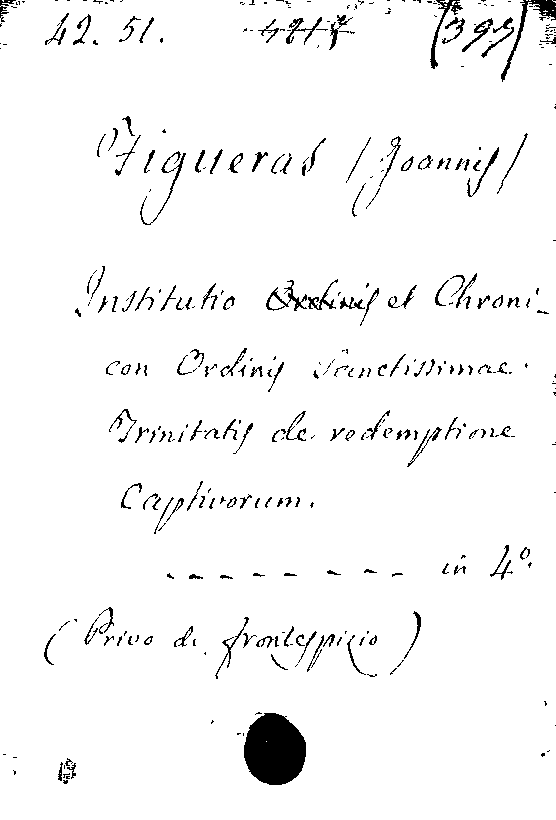 42. 51. 4217 (395)
Figueras (Joannis)
Institutio Ordinis et Chroni-
con Ordinis Sanctissimae
Trinitatis de redemptione
Captivorum.
-------- in 4º.
(Privo di frontespizio)